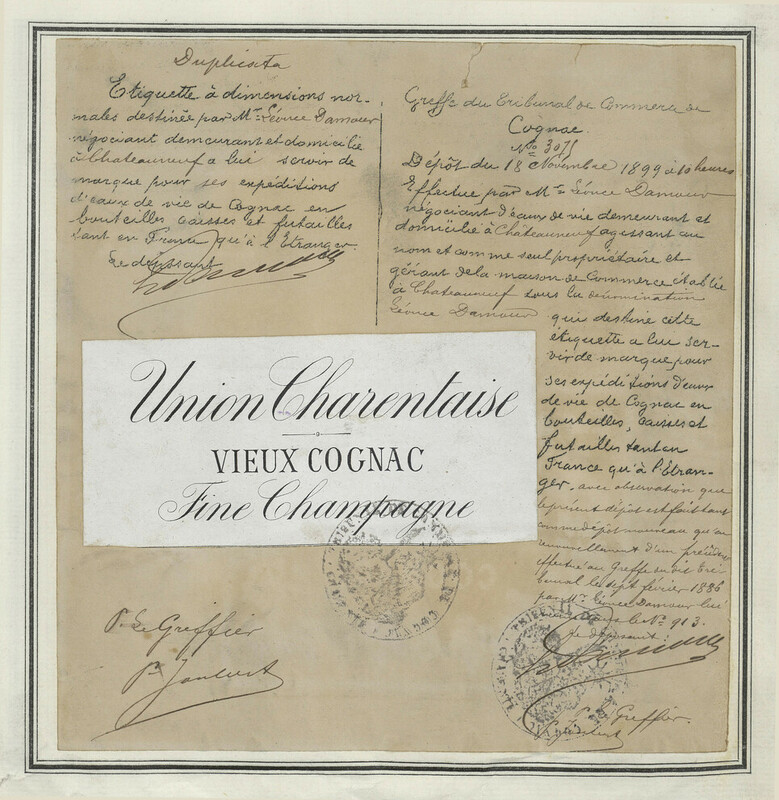 Duplicata
Etiquette à dimensions nor-
males destinée par Mr Léonce Damour
négociant demeurant et domicilié
à Chateauneuf a lui servir de
marque pour ses expéditions
d'eaux de vie de Cognac en
bouteilles caisses et futailles
tant en France qu'à l'Etranger.
Le déposant
Greffe du Tribunal de Commerce de
Cognac.
No 3075
Dépôt du 18 Novembre 1899 à 10 heures
Effectué par Mr Léonce Damour
négociant d'eaux de vie demeurant et
domicilié à Châteauneuf agissant au
nom et comme seul propriétaire et
gérant de la maison de Commerce établie
à Chateauneuf sous la dénomination
Léonce Damour
qui destine cette
étiquette a lui ser-
vir de marque pour
ses expéditions d'eaux
de vie de Cognac en
bouteilles, caisses et
futailles tant en
France qu'à l'Etran-
ger. avec observation que
le présent dépôt est fait tant
comme dépôt nouveau qu'en
renouvellement d'un précédent
effectué au greffe du dit Tri-
bunal le sept février 1886
par Mr Léonce Damour lui
sous le No 913.
Le déposant:
Union Charentaise
VIEUX COGNAC
Fine Champagne
P. Le Greffier
Pr Joubert
P. Le Greffier